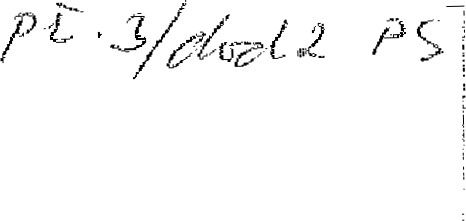 př. 3/dod. 2 PS